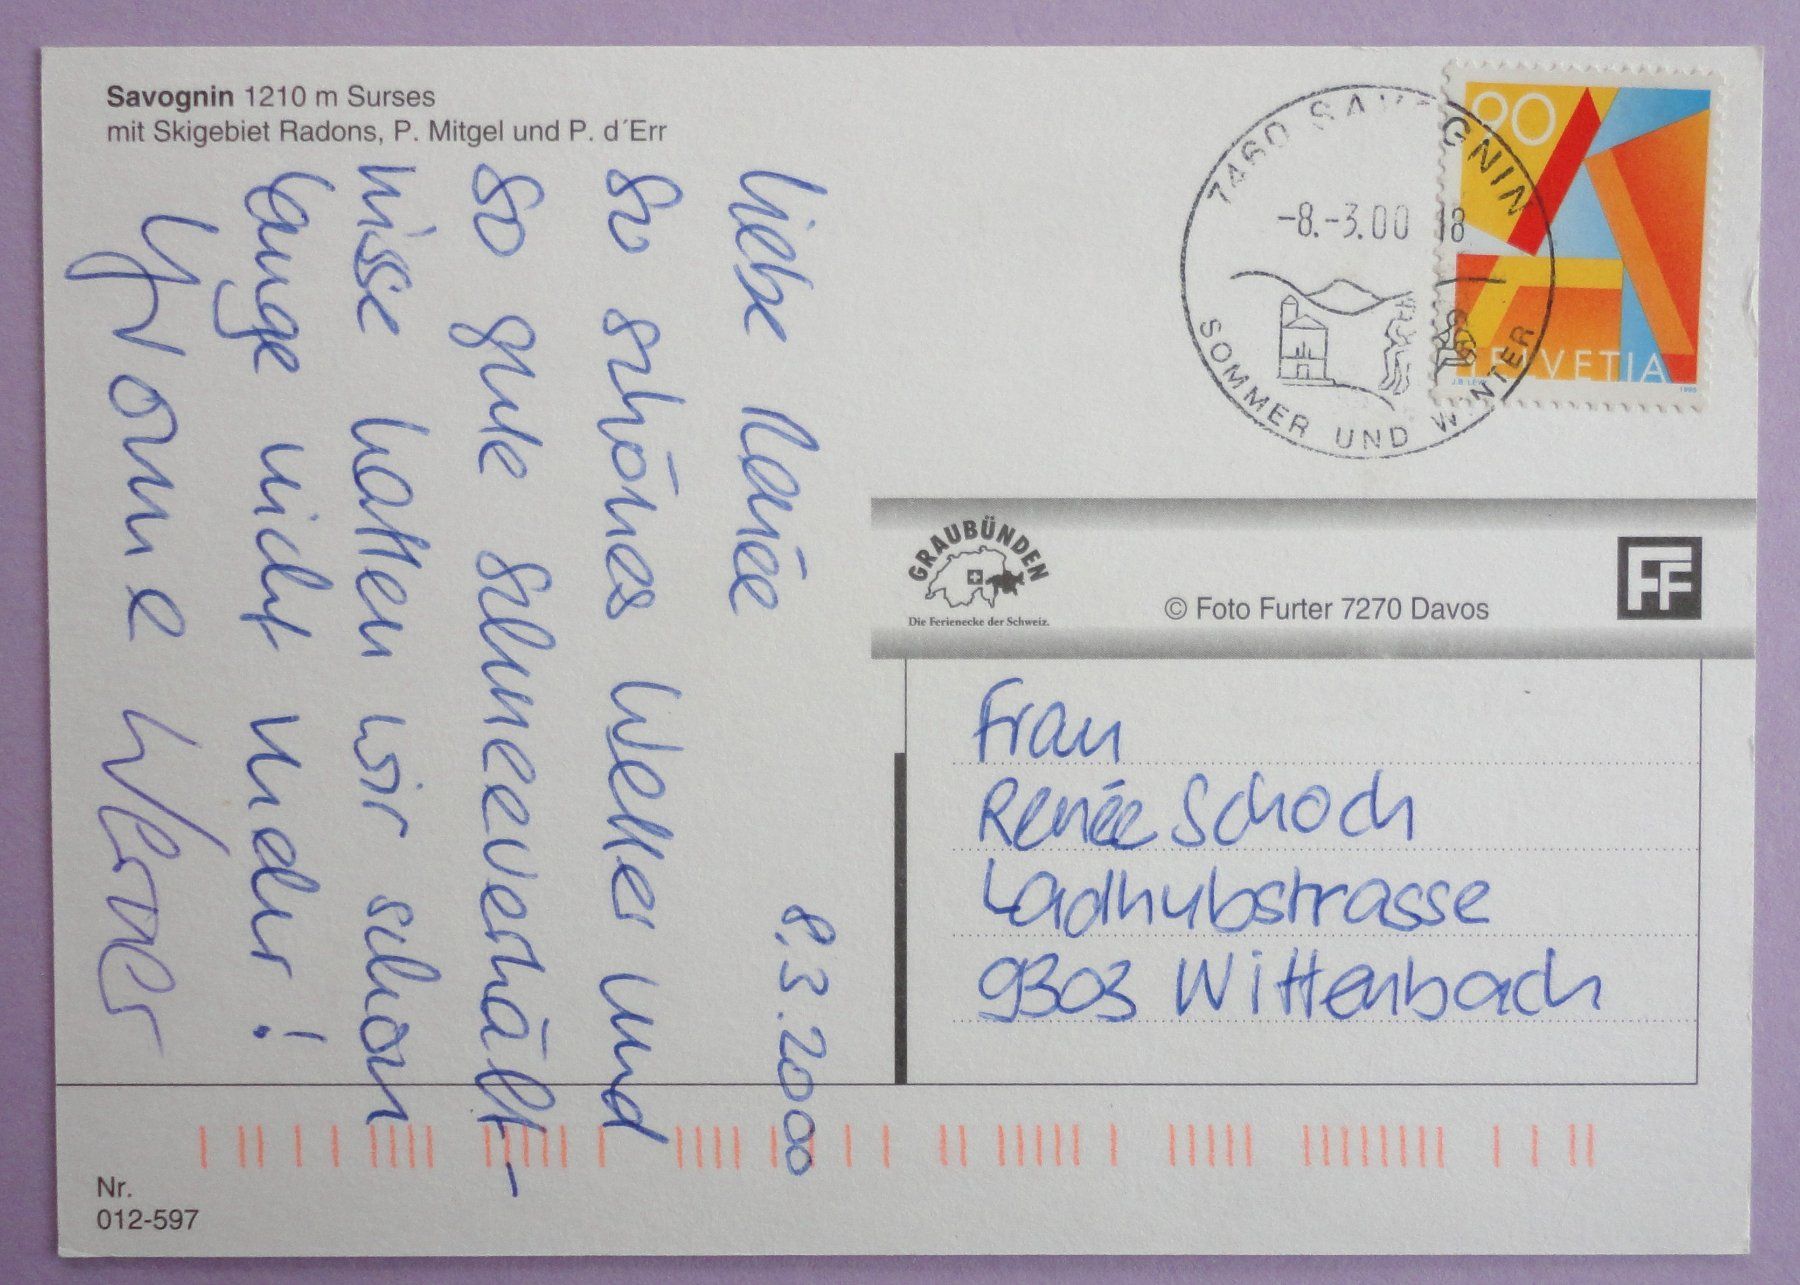 Savognin 1210 m Surses
mit Skigebiet Radons, P. Mitgel und P. d´Err
8.3.2000
Liebe Renée
So schönes Wetter und
so gute Schneeverhält-
nisse hatten wir schon
lange nicht mehr!
Yvonne Werner
7460 SAVOGNIN
-8.-3.00 18
SOMMER UND WINTER
90
HELVETIA
1995
GRAUBÜNDEN
Die Ferienecke der Schweiz.
© Foto Furter 7270 Davos
FF
Frau
Renée Schoch
Ladhubstrasse
9303 Wittenbach
Nr.
012-597